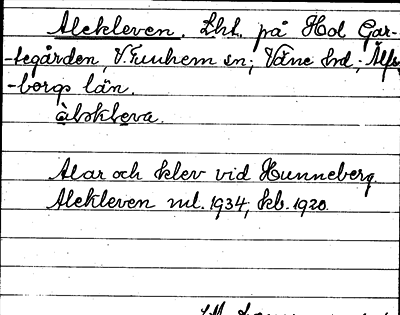 Alekleven. Lht. på Hol Gar-
-tegården, V. Tunhem sn; Väne hd; Älfs-
-borgs län.
àlskleva.
Alar och klev vid Hunneberg.
Alekleven ml. 1934, kb. 1920.